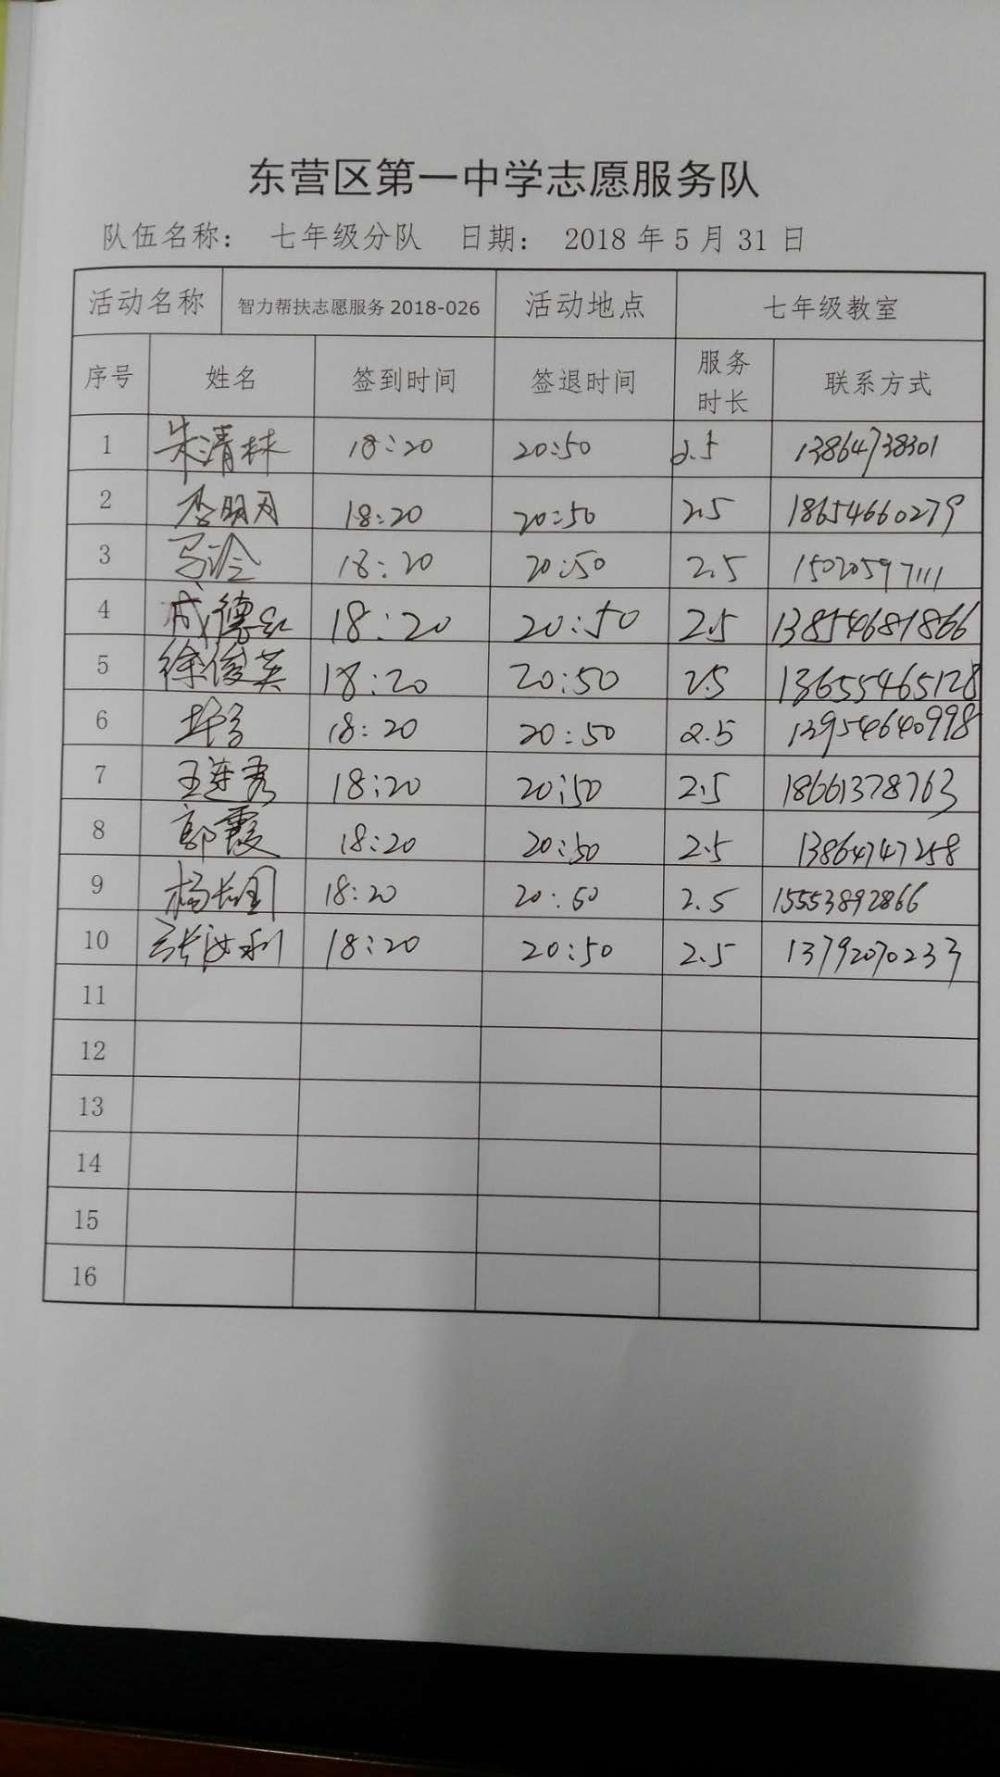 东营区第一中学志愿服务队
队伍名称： 七年级分队 日期： 2018 年 5 月 31 日
活动名称 智力帮扶志愿服务 2018-026 活动地点 七年级教室
序号 姓名 签到时间 签退时间 服务时长 联系方式
1 朱清林 18:20 20:50 2.5 13864738301
2 李明月 18:20 20:50 2.5 18654660279
3 马冷 18:20 20:50 2.5 15020597111
4 成德红 18:20 20:50 2.5 13854681866
5 徐俊英 18:20 20:50 2.5 13655465128
6 18:20 20:50 2.5 13954640998
7 王连秀 18:20 20:50 2.5 18661378763
8 郭霞 18:20 20:50 2.5 13864747258
9 杨长国 18:20 20:50 2.5 15553892866
10 张汝利 18:20 20:50 2.5 13792070233
11
12
13
14
15
16